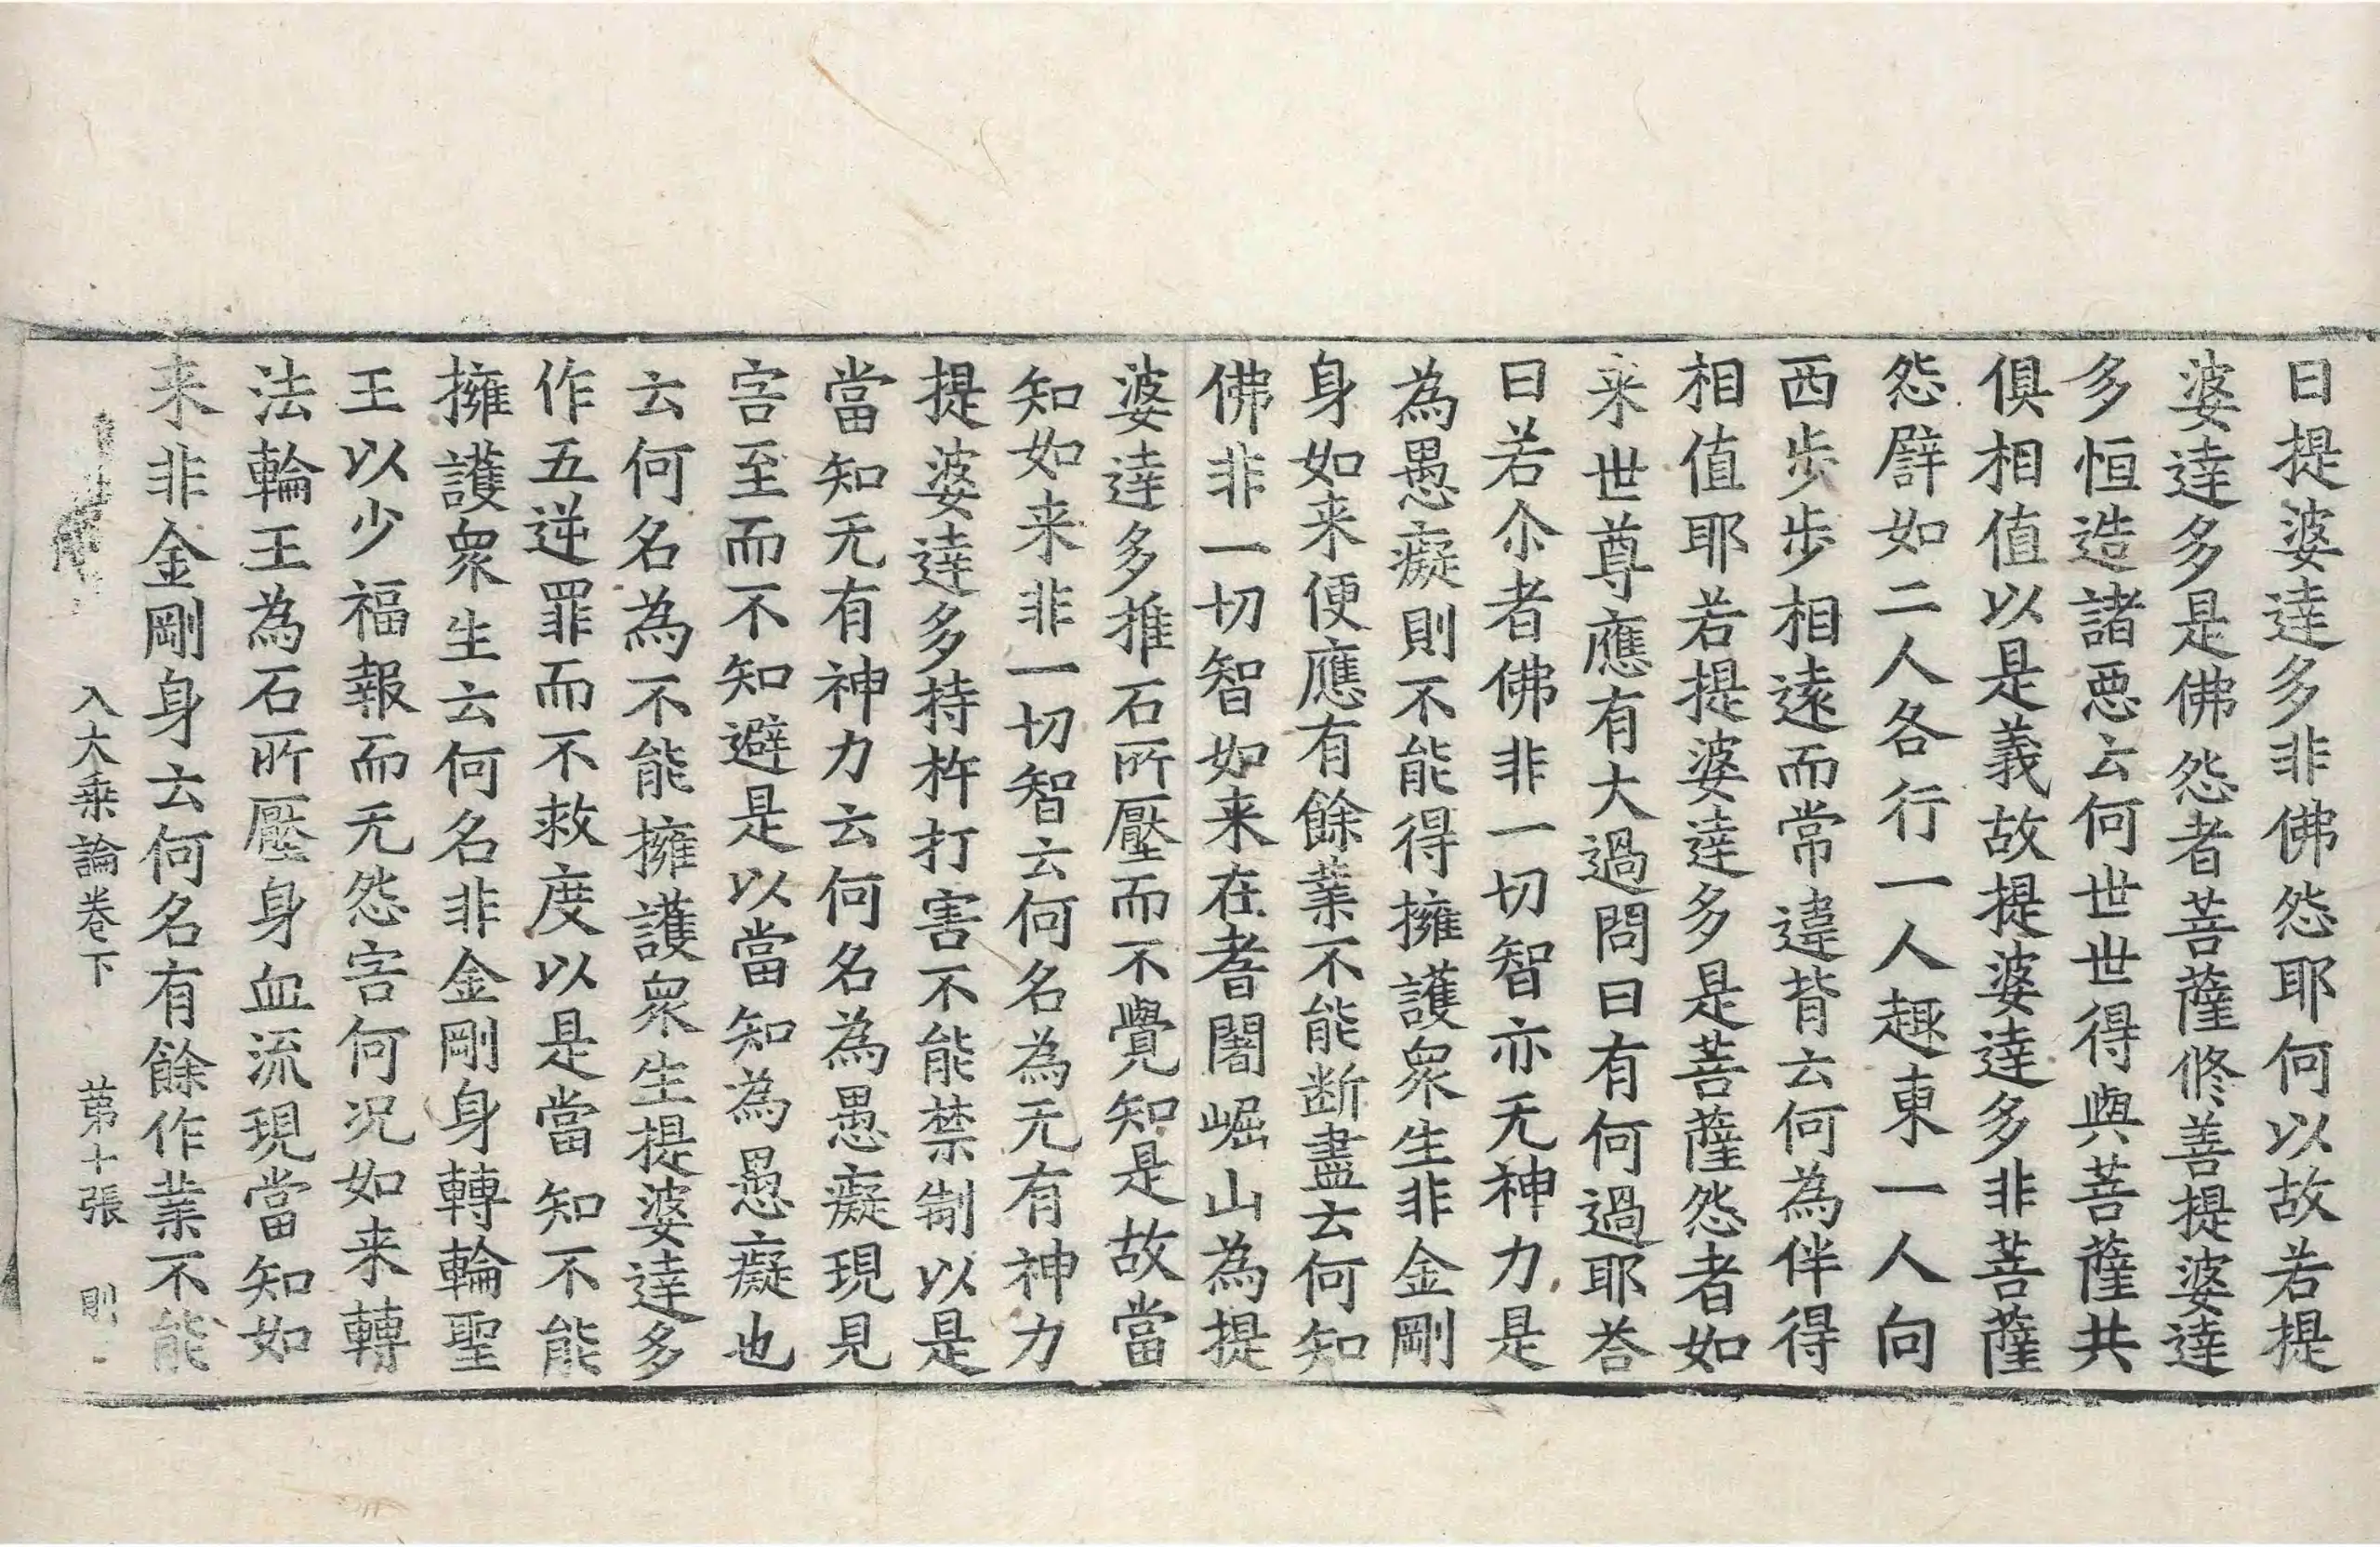 曰提婆達多非佛怨耶何以故若提
婆達多是佛怨者菩薩修善提婆達
多恒造諸惡云何世世得與菩薩共
俱相值以是義故提婆達多非菩薩
怨譬如二人各行一人趣東一人向
西步步相遠而常違背云何為伴得
相值耶若提婆達多是菩薩怨者如
来世尊應有大過問曰有何過耶荅
曰若尒者佛非一切智亦无神力是
為愚癡則不能得擁護衆生非金剛
身如来便應有餘業不能断盡云何知
佛非一切智如来在耆闍崛山為提
婆達多推石所壓而不覺知是故當
知如来非一切智云何名為无有神力
提婆達多持杵打害不能禁制以是
當知无有神力云何名為愚癡現見
害至而不知避是以當知為愚癡也
云何名為不能擁護衆生提婆達多
作五逆罪而不救度以是當知不能
擁護衆生云何名非金剛身轉輪聖
王以少福報而无怨害何况如来轉
法輪王為石所壓身血流現當知如
来非金剛身云何名有餘作業不能
入大乗論卷下 苐十張 則